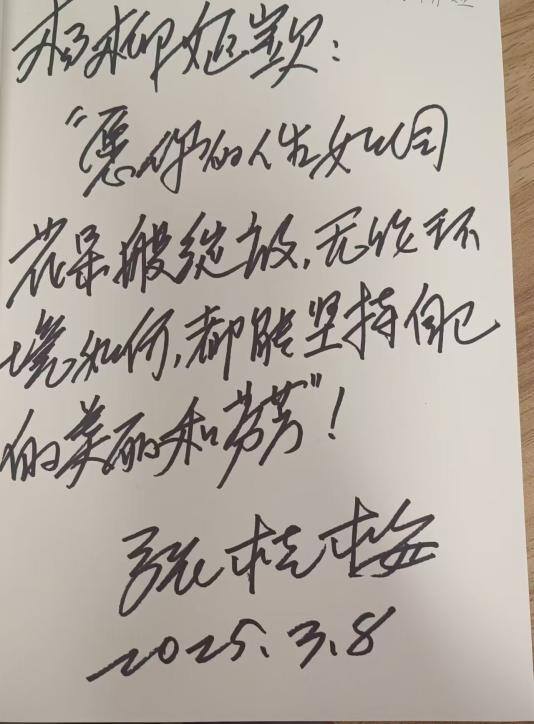 杨柳妲宝贝：
“愿你的人生如同
花朵般绽放，无论环
境如何，都能坚持自己
的美丽和芬芳”！
张桂梅
2025.3.8